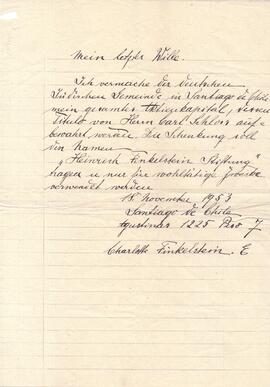 Mein letzter Wille.
Ich vermache der deutschen
Jüdischen Gemeinde in Santiago de Chile
mein gesamtes Aktienkapital, dessen
Titulos von Herrn Carl Schloss auf-
bewahrt werden. Die Schenkung soll
den Namen
„Heinrich Finkelstein Stiftung"
tragen u nur für wohltätige Zwecke
verwendet werden
15. November 1953
Santiago de Chile
Agustinas 1225 Piso 7
Charlotte Finkelstein. E